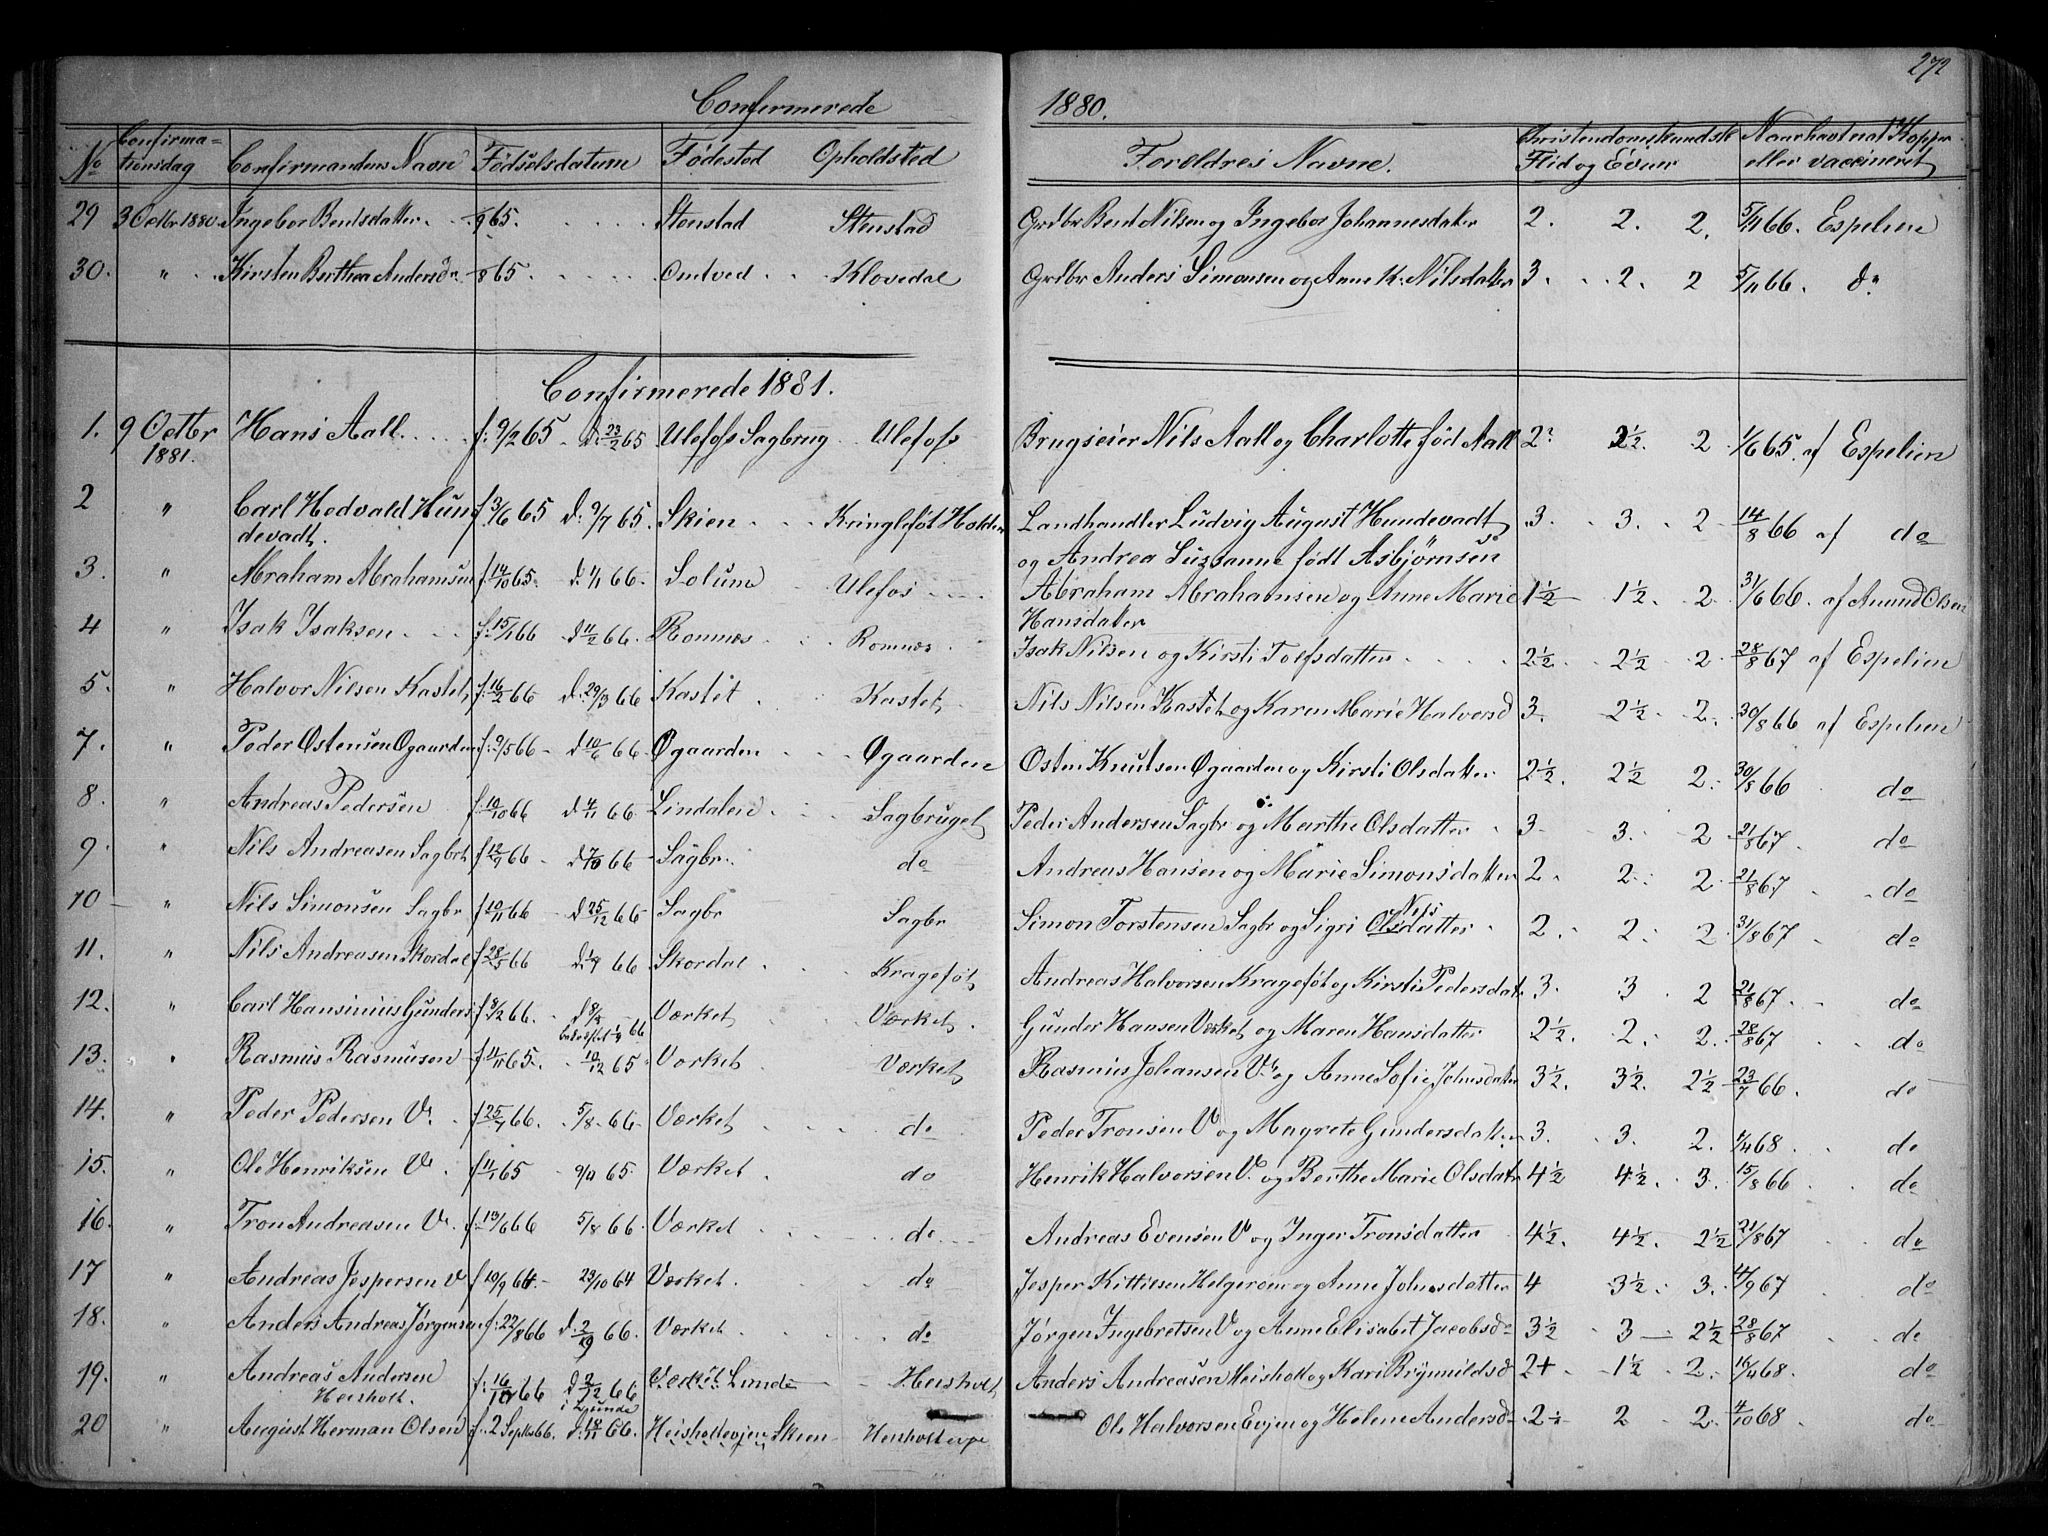 272
Confirmerede 1880.
No Confirma-tionsdag Confirmandens Navn Fødselsdatum Fødested Opholdsted Forældres Navne. Christendomskundsk Flid og Evner Naar havt nat. Kopper eller vaccineret
29 3 Octbr 1880 Ingebor Bentsdatter 9 65. Stenstad Stenstad Grdbr Bent Nilsen og Ingebor Johannesdatter 2. 2. 2. 5/11 66. Espelien
30. " Kirsten Berthea Andersdr 8 65. Omtved Klovedal Grdbr Anders Simonsen og Anne K. Nilsdatter 3. 2. 2 5/11 66. do
Confirmerede 1881.
1. 9 Octbr 1881. Hans Aall f: 9/2 65 d: 23/2 65 Ulefos Sagbrug Ulefos Brugseier Nils Aall og Charlotte fød Aall 2 2½. 2 1/6 65. af Espelien
2 " Carl Hedvald Hun f 3/6 65 d: 9/7 65. Skien Kringlefot Holden Landhandler Ludvig August Hundevadt 3. 3. 2 14/8 66 af do
devadt. og Andrea Suzsanne født Asbjørnsen
3. " Abraham Abrahamsen f: 14/10 65. d. 1/1 66. Solum Ulefos Abraham Abrahamsen og Anne Marie 1½ 1½. 2. 31/6 66. af Amund Olsen
Hansdatter
4 " Isak Isaksen f: 15/1 66 d 11/2 66. Romnæs Romnæs Isak Nilsen og Kirsti Tolfsdatter 2½ 2½ 2. 28/8 67 af Espelien
5. " Halvor Nilsen Kastet f: 16/2 66 d: 29/3 66 Kastet Kastet Nils Nilsen Kastet og Karen Marie Halvorsd 3. 2½ 2. 30/8 66 af Espelien
7. " Peder Østensen Øgaarden f: 9/5 66 d 10/6 66 Øgaarden Øgaarden Østen Knutsen Øgaarden og Kirsti Olsdatter 2½. 2½ 2. 30/8 66 do
8. " Andreas Pedersen f 10/10 66 d 4/11 66 Lindalen Sagbruget Peder Andersen Sagbr og Marthe Olsdatter 3. 3. 2 21/8 67. do
9. " Nils Andreasen Sagbrt f 12/9 66 d 7/10 66 Sagbr. do Andreas Hansen og Marie Simonsdatter 2. 2. 2. 21/8 67. do
10 " Nils Simonsen Sagbr f 10/11 66 d 25/12 66 Sagbr Sagbr Simon Torstensen Sagbr og Sigri Olsdatter Nels 2. 2. 2. 31/8 67 do
11. " Nils Andreasen Skordal f 28/5 66 d. 1/7 66 Skordal Kragefot Andreas Halvorsen Kragefot og Kirsti Pedersdatr 3. 3 2 21/8 67. do
12. " Carl Hansinius Gunders f 8/2 66. d 8/3 Værket Værket. Gunder Hansen Værket og Maren Hansdatter 2½. 2. 2. 28/8 67 do
66
13. " Rasmus Rasmusen f 11/11 65. 10/12 65 Værket Værket Rasmus Johansen V. og Anne Sofie Johnsdatter 3½. 3½. 2½ 23/7 66. do
14. " Peder Pedersen V. f 25/7 66. 5/8 66 Værket do Peder Tronsen V og Magrete Gundersdatter 3. 3. 2. 1/4 68. do
15. " Ole Henriksen V. f 11/1 65 9/4 65. Værket do Henrik Halvorsen V. og Berthe Marie Olsdatr 4½ 4½. 3. 15/8 66 do
16. " Tron Andreasen V. f: 13/6 66 5/8 66. Værket do Andreas Evensen V og Inger Tronsdatter 4½. 4½. 2½ 21/8 67 do
17 " Andreas Jespersen V f 10/9 64. 23/10 64 Værket. do Jesper Kittilsen Helgerom og Anne Johnsdatter 4 3½. 3. 11/9 67 do
18. " Anders Andreas Jørgensen f: 22/8 66 d. 2/9 66. Værket do Jørgen Ingebretsen V og Anne Elisabet Jacobsdr 3½ 3 2½ 28/8 67 do
19. " Andreas Andersen f: 16/10 66 d 2/12 66 Værket Lunde Heisholt Anders Andreasen Heisholt og Kari Brynuldsd 2+ 1½ 2. 16/4 68. do
Heisholt. i Lunde
20 " August Herman Olsen f. 2 Septbr 66. d: 18/11 66. Heisholtevjen Skien Heisholtevje Ole Halvorsen Evjen og Helene Andersd 2½ 2 2. 4/10 68. do